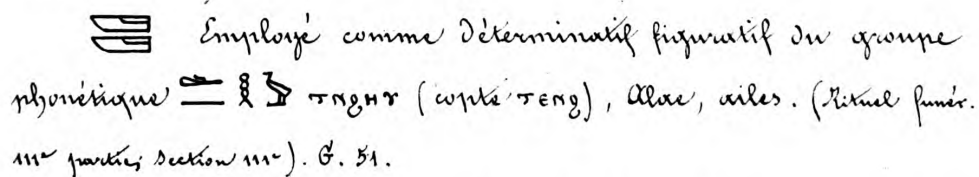 Employé comme Déterminatif figuratif du groupe
phonétique ⲧⲛϩⲏⲩ (copte ⲧⲉⲛϩ), Alae, ailes. (Rituel funér.
IIIe partie, section IIIe). G. 51.